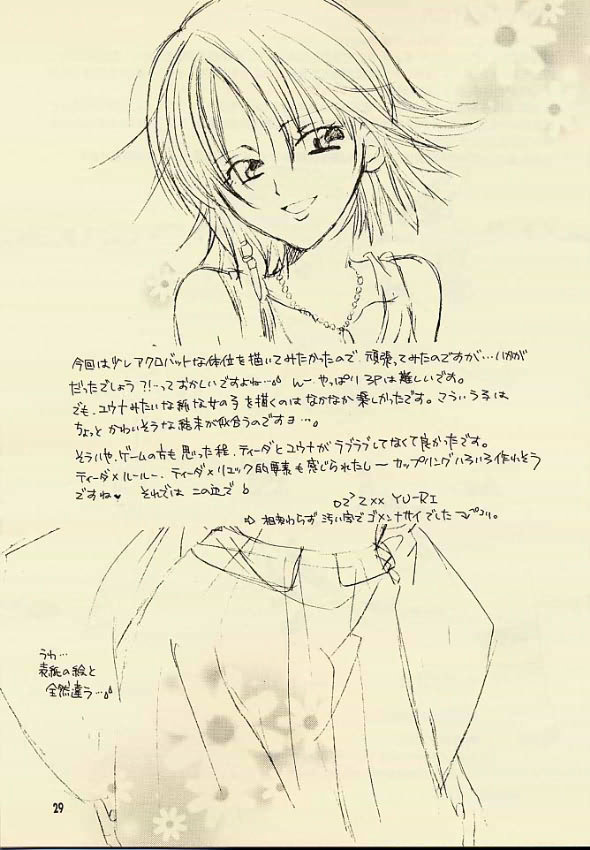 今回は少しアクロバットな体位を描いてみたかったので、頑張ってみたのですが…いかが
だったでしょう?!…っておかしいですよね… んー やっぱり 3Pは難しいです。
でも、ユウナみたいな純な女の子を描くのは なかなか楽しかったです。こういう子は
ちょっと かわいそうな結末が似合うのですヨ…。
そういや、ゲームの方も 思った程、ティーダとユウナが ラブラブしてなくて良かったです。
ティーダ×ルールー、ティーダ×リュック的要素も感じられたし〜 カップリングいろいろ作れそう
ですね♥ それでは この辺で
YU-RI
相変わらず 汚い字で ゴメンナサイでした
うわ…
表紙の絵と
全然違う…
29